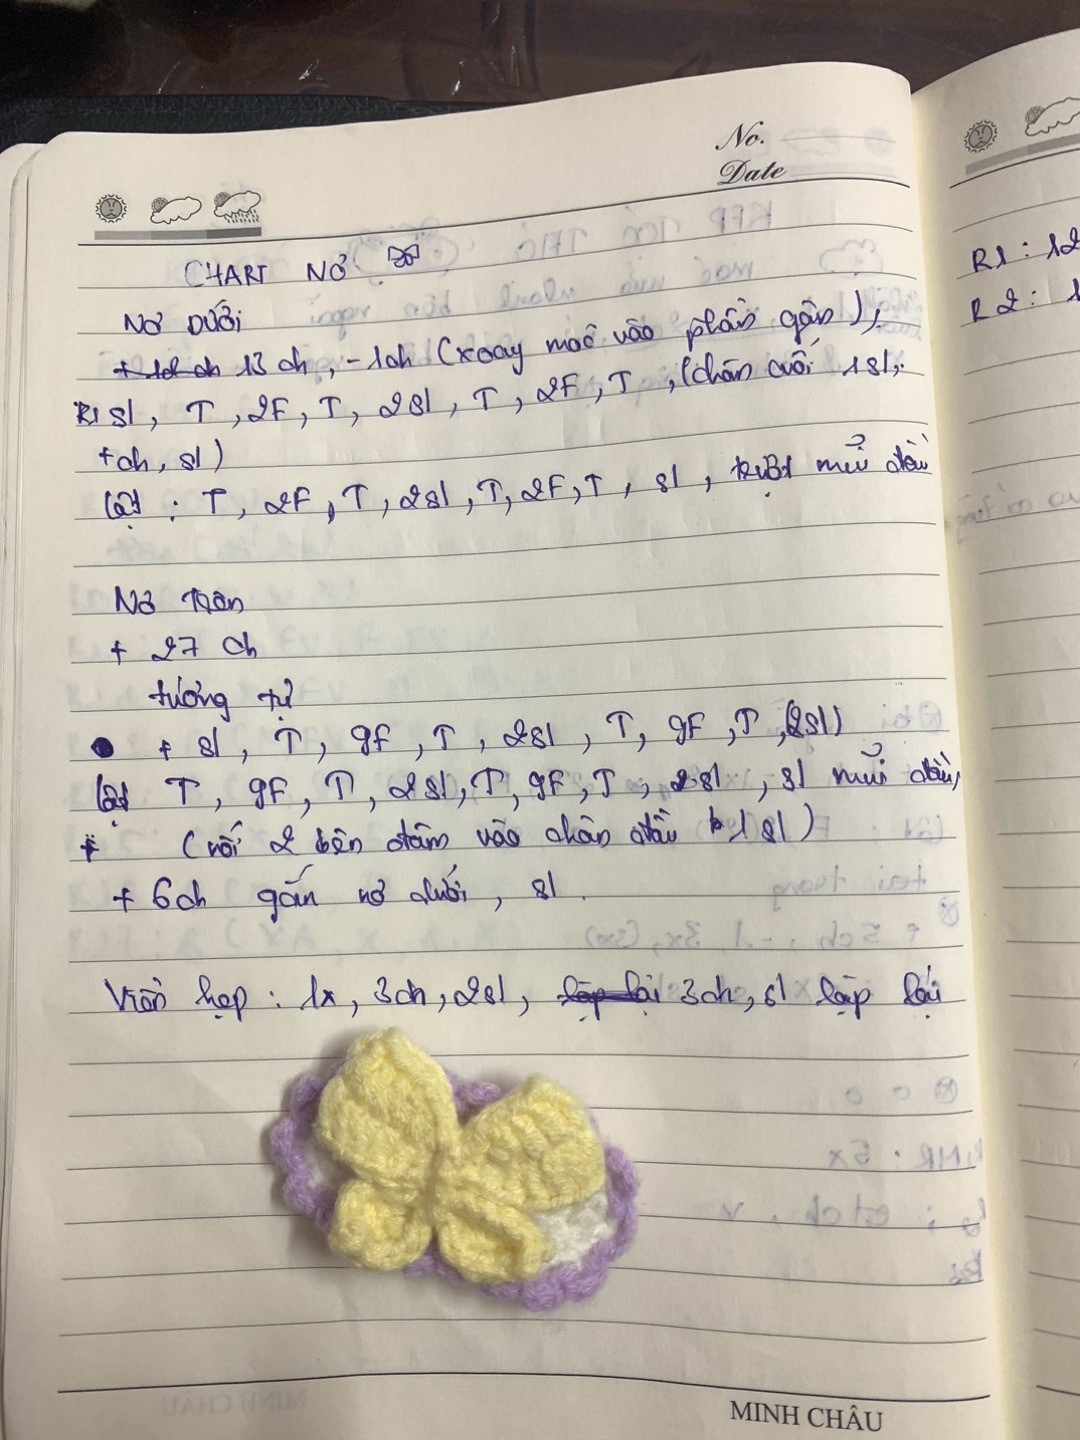 No.
Date
CHART NƠ
Nơ DƯỚI
+ 12 ch 13 ch, -1ch (xoay móc vào phần gân),
R1 sl, T, 2F, T, 2sl, T, 2F, T, (chân cuối 1sl,
+ch, sl)
Lật : T, 2F, T, 2sl, T, 2F, T, sl, mũi đầu
Nơ trên
+ 27 ch
tương tự
+ sl, T, 9F, T, 2sl, T, 9F, T, (2sl)
Lật T, 9F, T, 2sl, T, 9F, T, 2sl, sl mũi đầu,
+ (nối 2 bên đâm vào chân đầu 1 sl)
+ 6ch gắn nơ dưới, sl.
Viền hẹp : 1x, 3ch, 2sl, lặp lại 3ch, sl lặp lại
MINH CHÂU
R1 : 12
R2 : 1